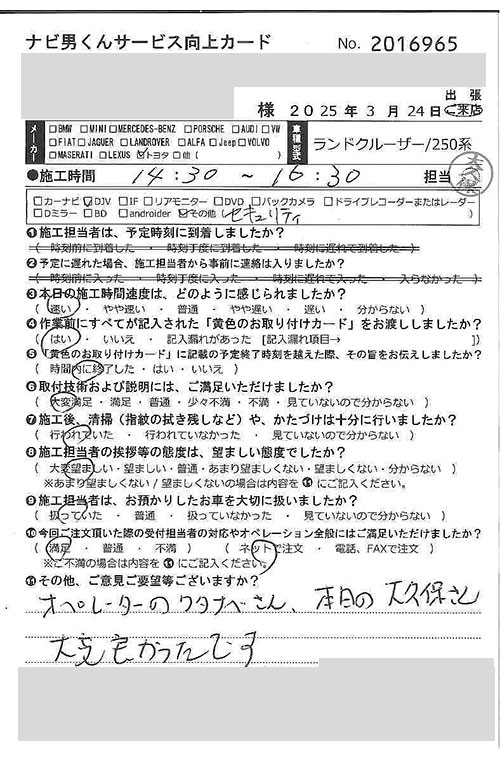 ナビ男くんサービス向上カード No. 2016965
様 2025年3月24日 出張 ご来店
メーカー □BMW □MINI □MERCEDES-BENZ □PORSCHE □AUDI □VW
□FIAT □JAGUER □LANDROVER □ALFA □Jeep □VOLVO
□MASERATI □LEXUS ☑トヨタ □他 ( )
車種型式 ランドクルーザー/250系
●施工時間 14:30 ~ 16:30 担当 大久保
□カーナビ ☑DJV □IF □リアモニター □DVD □バックカメラ □ドライブレコーダーまたはレーダー
□Dミラー □BD □androider ☑その他 ( セキュリティ )
❶施工担当者は、予定時刻に到着しましたか?
( 時刻前に到着した ・ 時刻丁度に到着した ・ 時刻に遅れて到着した )
❷予定に遅れた場合、施工担当者から事前に連絡は入りましたか?
( 時刻前に入った ・ 時刻丁度に入った ・ 時刻に遅れて入った ・ 入らなかった )
❸本日の施工時間速度は、どのように感じられましたか?
( 速い ・ やや速い ・ 普通 ・ やや遅い ・ 遅い ・ 分からない )
❹作業前にすべてが記入された「黄色のお取り付けカード」をお渡ししましたか?
( はい ・ いいえ ・ 記入漏れがあった [記入漏れ項目→ ])
❺「黄色のお取り付けカード」に記載の予定終了時刻を越えた際、その旨をお伝えしましたか?
( 時間内に終了した ・ はい ・ いいえ )
❻取付技術および説明には、ご満足いただけましたか?
( 大変満足 ・ 満足 ・ 普通 ・ 少々不満 ・ 不満 ・ 見ていないので分からない )
❼施工後、清掃(指紋の拭き残しなど)や、かたづけは十分に行いましたか?
( 行われていた ・ 行われていなかった ・ 見ていないので分からない )
❽施工担当者の挨拶等の態度は、望ましい態度でしたか?
( 大変望ましい・望ましい・普通・あまり望ましくない・望ましくない・分からない )
※あまり望ましくない / 望ましくないの場合は内容を⓫にご記入ください。
❾施工担当者は、お預かりしたお車を大切に扱いましたか?
( 扱っていた ・ 普通 ・ 扱っていなかった ・ 見ていないので分からない )
❿今回ご注文頂いた際の受付担当者の対応やオペレーション全般にはご満足いただけましたか?
( 満足 ・ 普通 ・ 不満 ) ( ネットで注文 ・ 電話、FAXで注文 )
※ご不満の場合は内容を⓫にご記入ください。
⓫その他、ご意見ご要望等ございますか?
オペレーターのワタナベさん、本日の大久保さん
大変良かったです